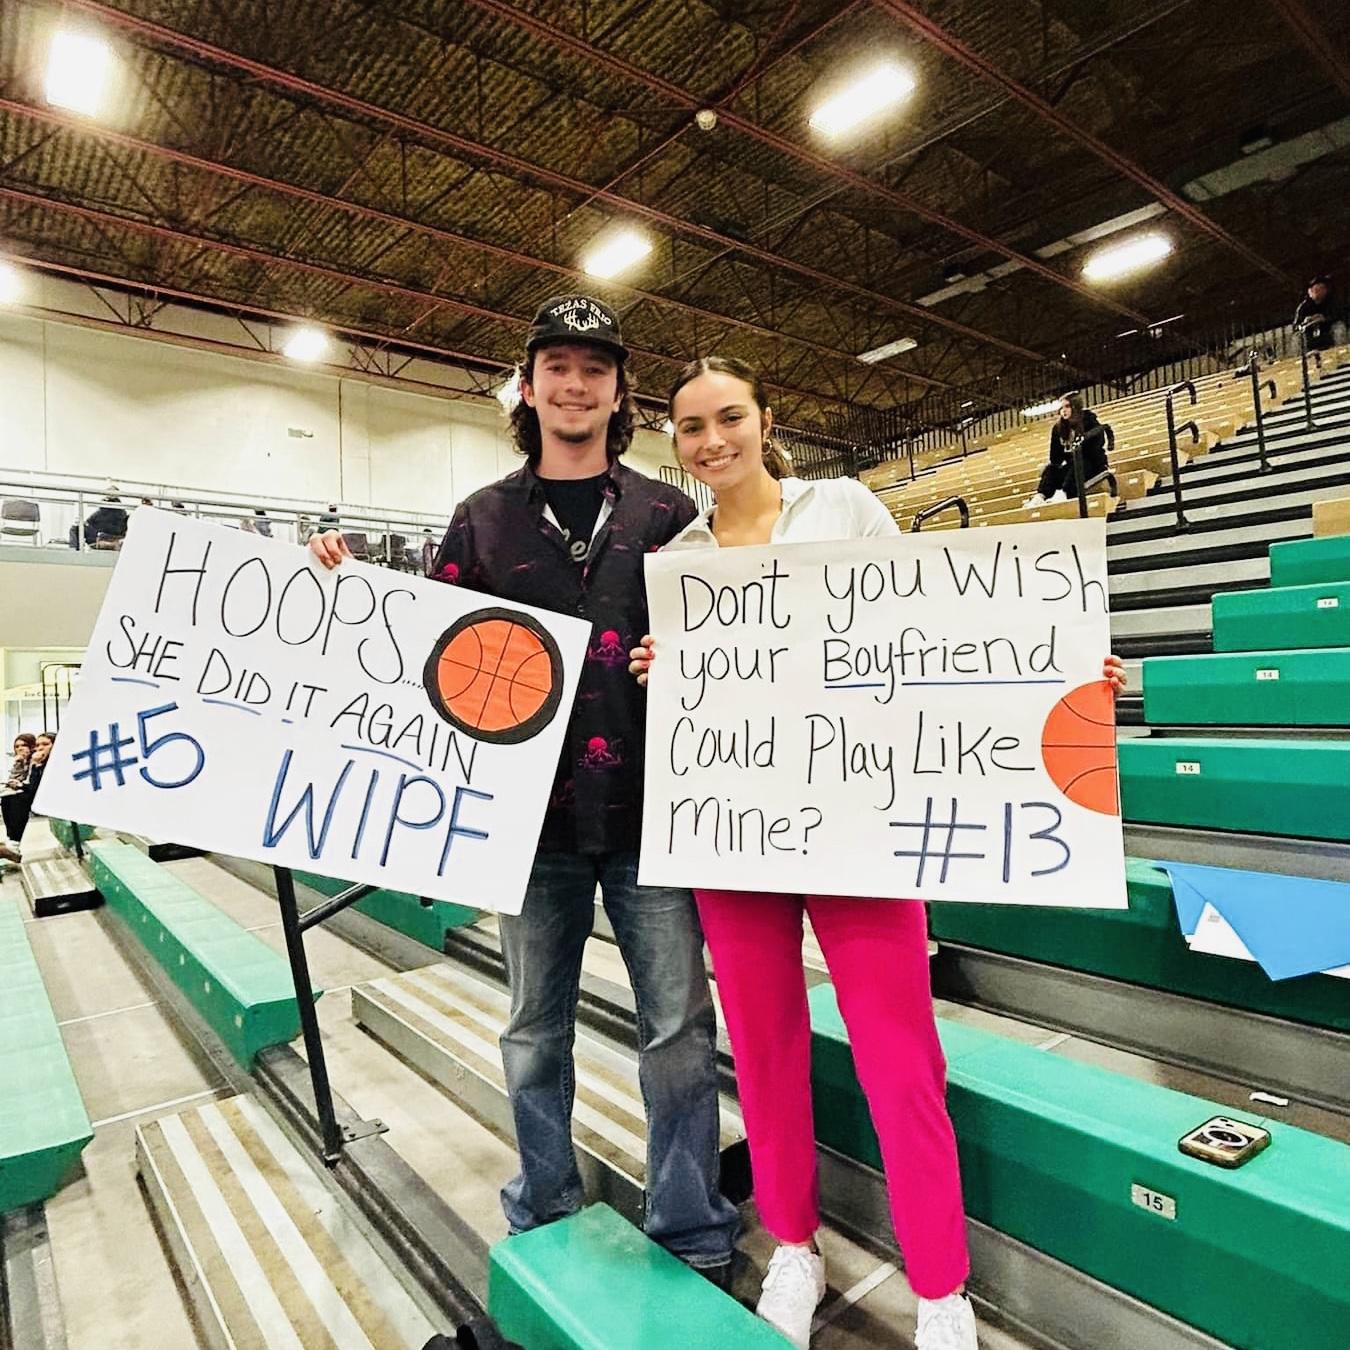 TEXAS FRIO
HOOPS......
SHE DID IT AGAIN
#5 WIPF
Don't you Wish
your Boyfriend
Could Play Like
Mine? #13
14
14
14
15